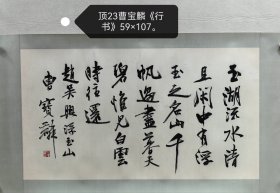 顶23曹宝麟《行
书》59×107。
玉湖流水清
且闲中有浮
玉之名山千
帆过尽暮天
碧惟见白云
时往还
赵吴兴浮玉山
曹宝麟